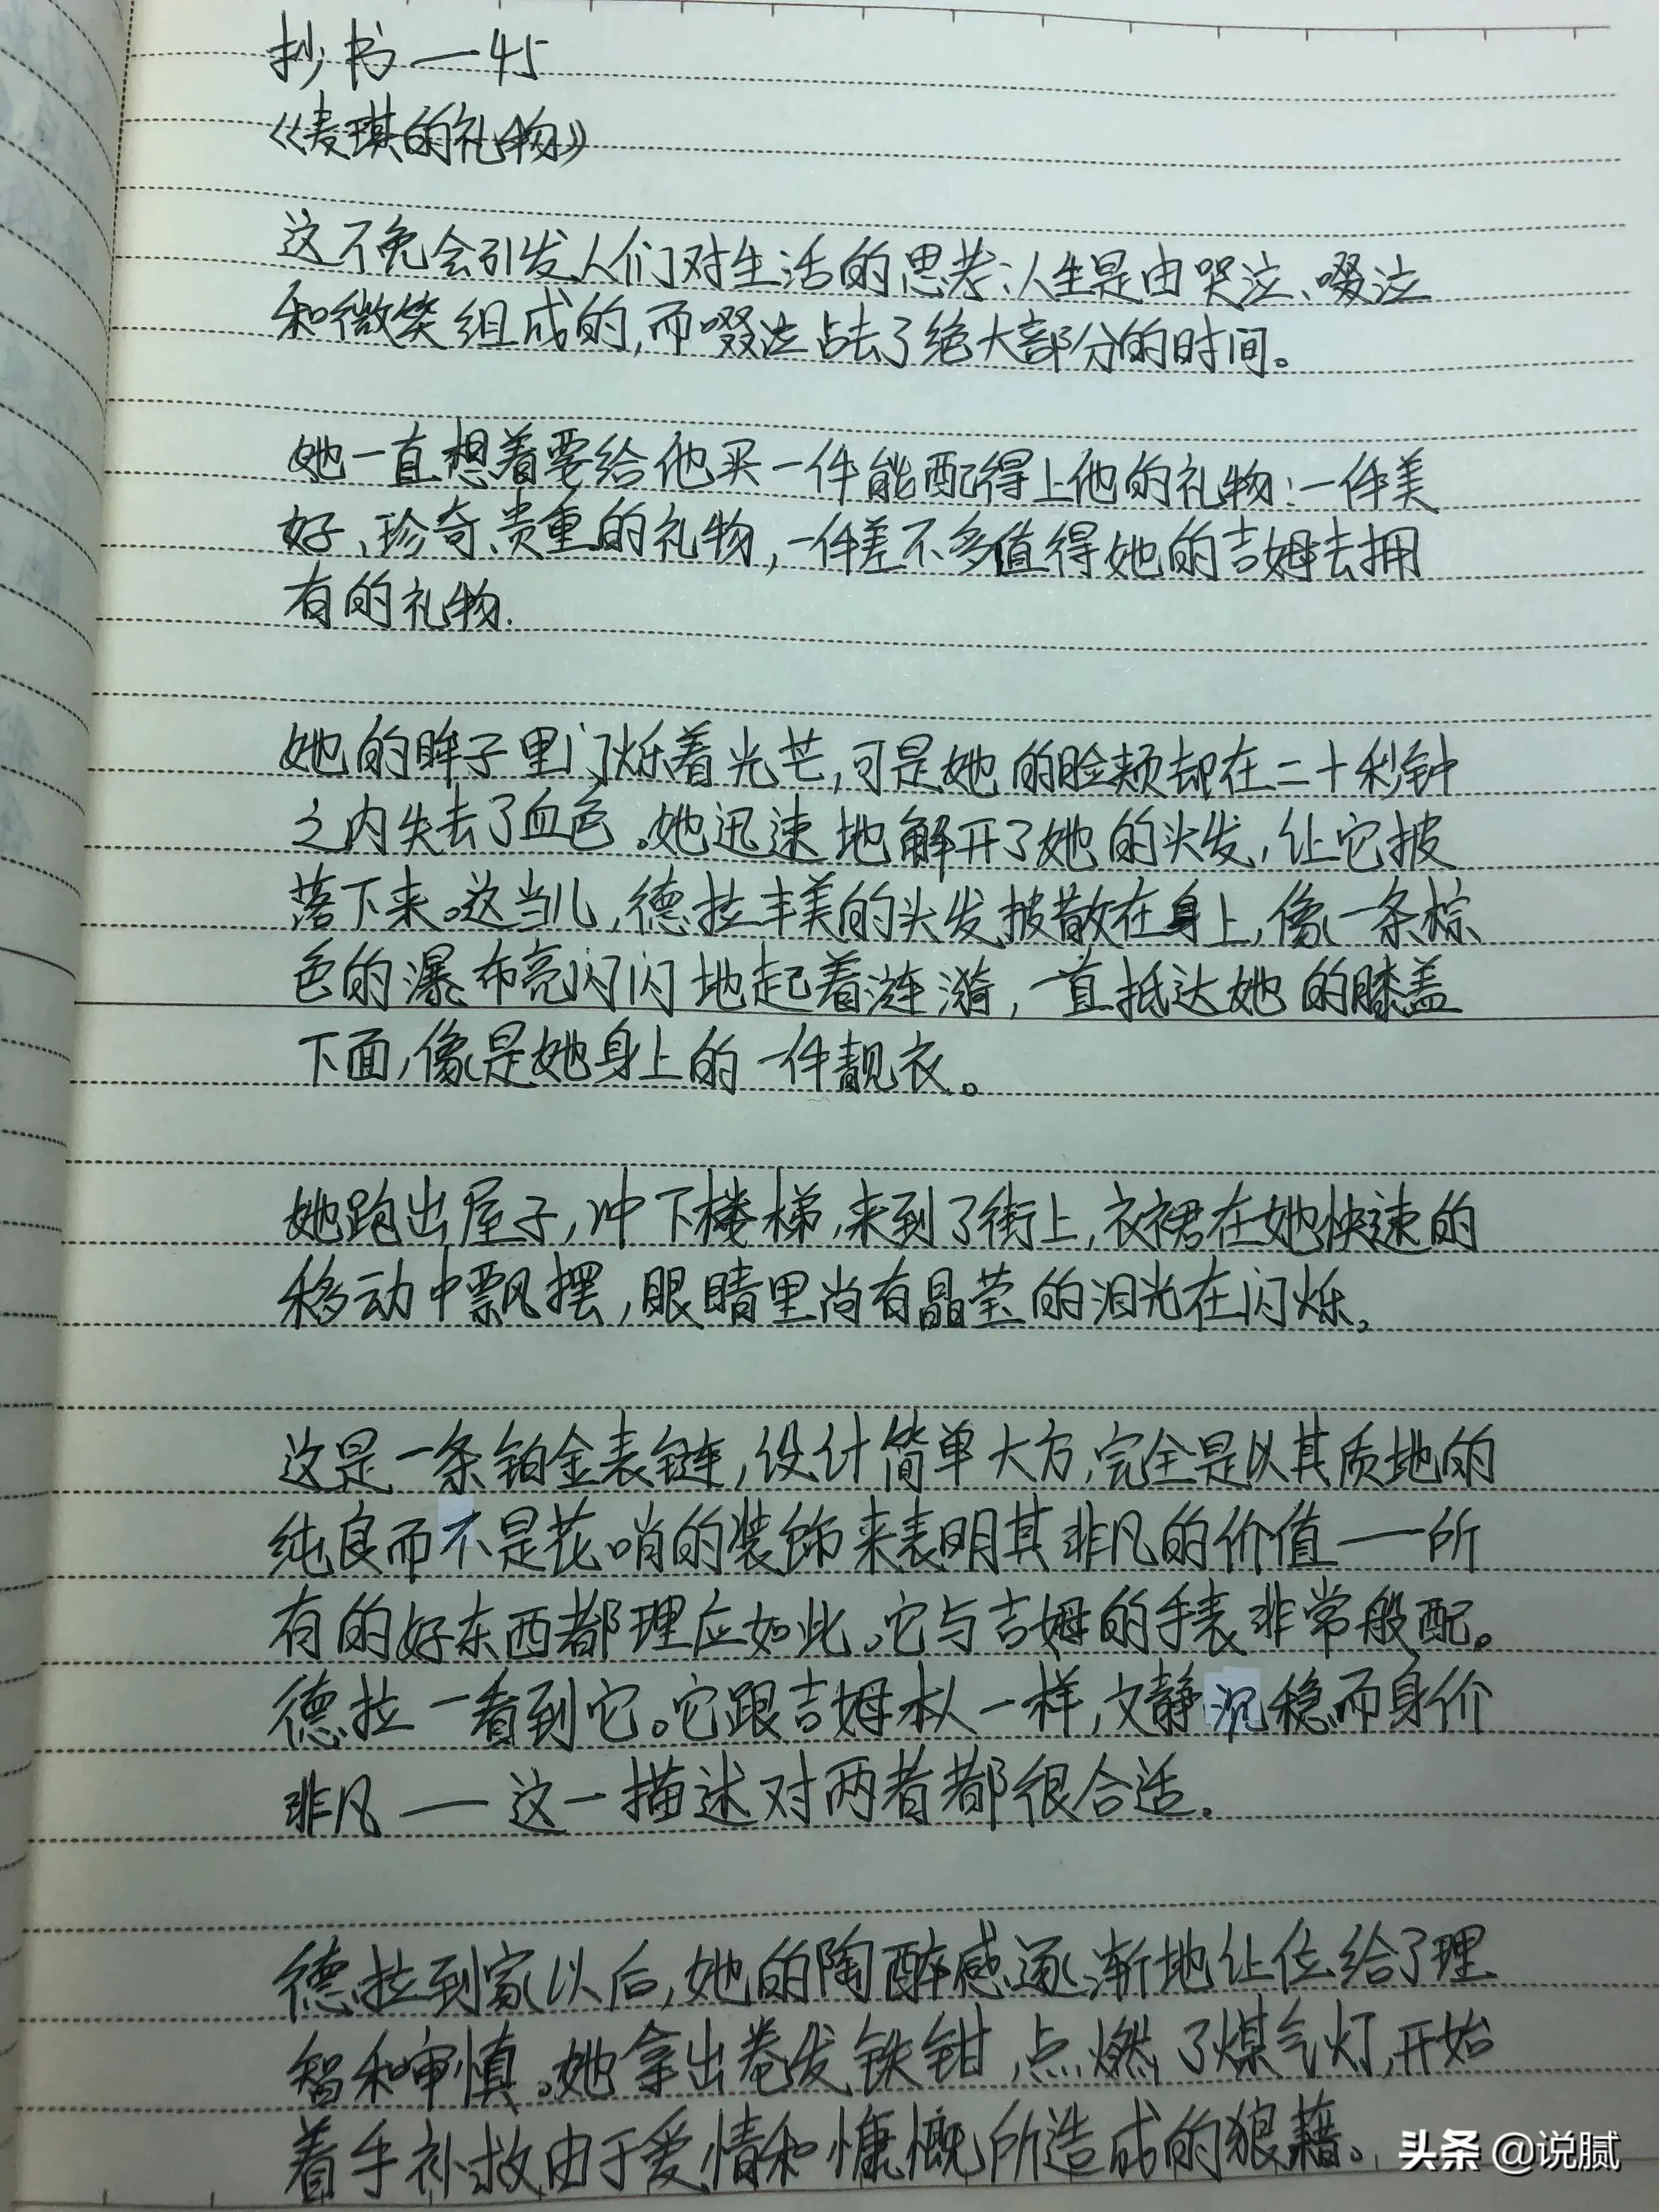 抄书—45
《麦琪的礼物》
这不免会引发人们对生活的思考:人生是由哭泣、啜泣
和微笑组成的,而啜泣占去了绝大部分的时间。
她一直想着要给他买一件能配得上他的礼物:一件美
好、珍奇、贵重的礼物,一件差不多值得她的吉姆去拥
有的礼物.
她的眸子里闪烁着光芒,可是她的脸颊却在二十秒钟
之内失去了血色。她迅速地解开了她的头发,让它披
落下来。这当儿,德拉丰美的头发披散在身上,像一条棕
色的瀑布亮闪闪地起着涟漪,一直抵达她的膝盖
下面,像是她身上的一件靓衣。
她跑出屋子,冲下楼梯,来到了街上,衣裙在她快速的
移动中飘摆,眼睛里尚有晶莹的泪光在闪烁。
这是一条铂金表链,设计简单大方,完全是以其质地的
纯良而不是花哨的装饰来表明其非凡的价值——所
有的好东西都理应如此。它与吉姆的手表非常般配。
德拉一看到它。它跟吉姆本人一样,文静沉稳而身价
非凡——这一描述对两者都很合适。
德拉到家以后,她的陶醉感逐渐地让位给了理
智和审慎。她拿出卷发铁钳,点燃了煤气灯,开始
着手补救由于爱情和慷慨所造成的狼藉。
头条 @说腻